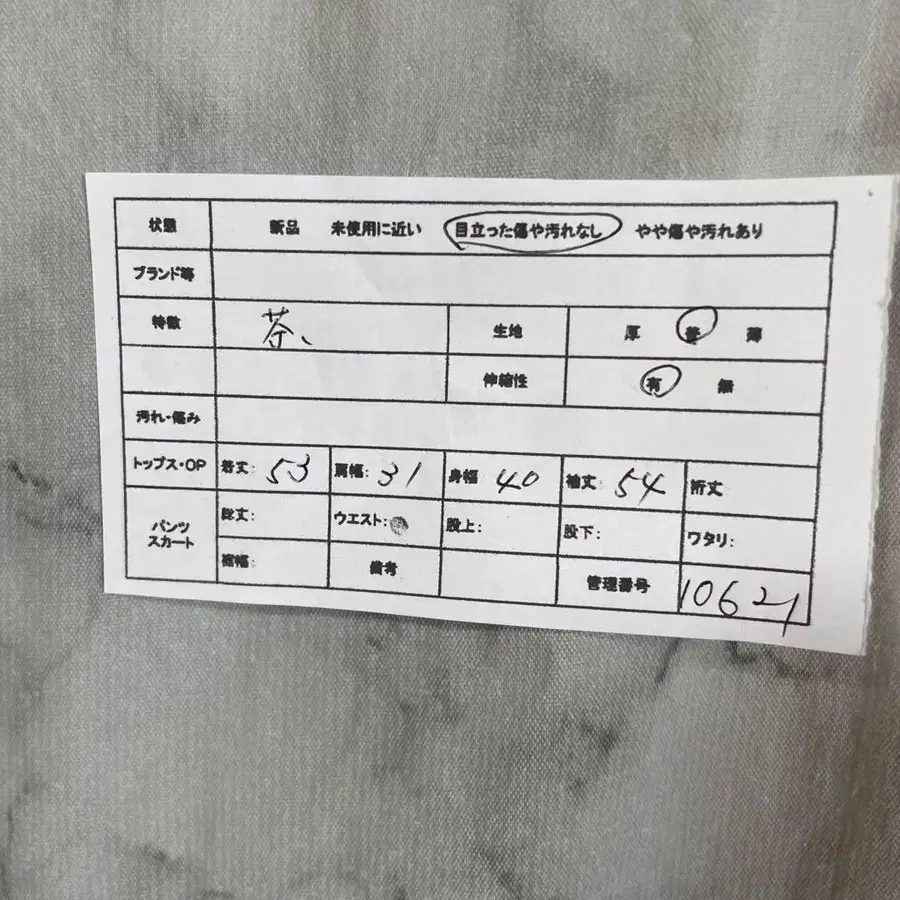 状態 新品 未使用に近い 目立った傷や汚れなし やや傷や汚れあり
ブランド等
特徴 茶、 生地 厚 普 薄
伸縮性 有 無
汚れ・傷み
トップス・OP 着丈: 53 肩幅: 31 身幅: 40 袖丈: 54 裄丈
パンツ スカート 総丈: ウエスト: 股上: 股下: ワタリ:
裾幅: 備考 管理番号 10621